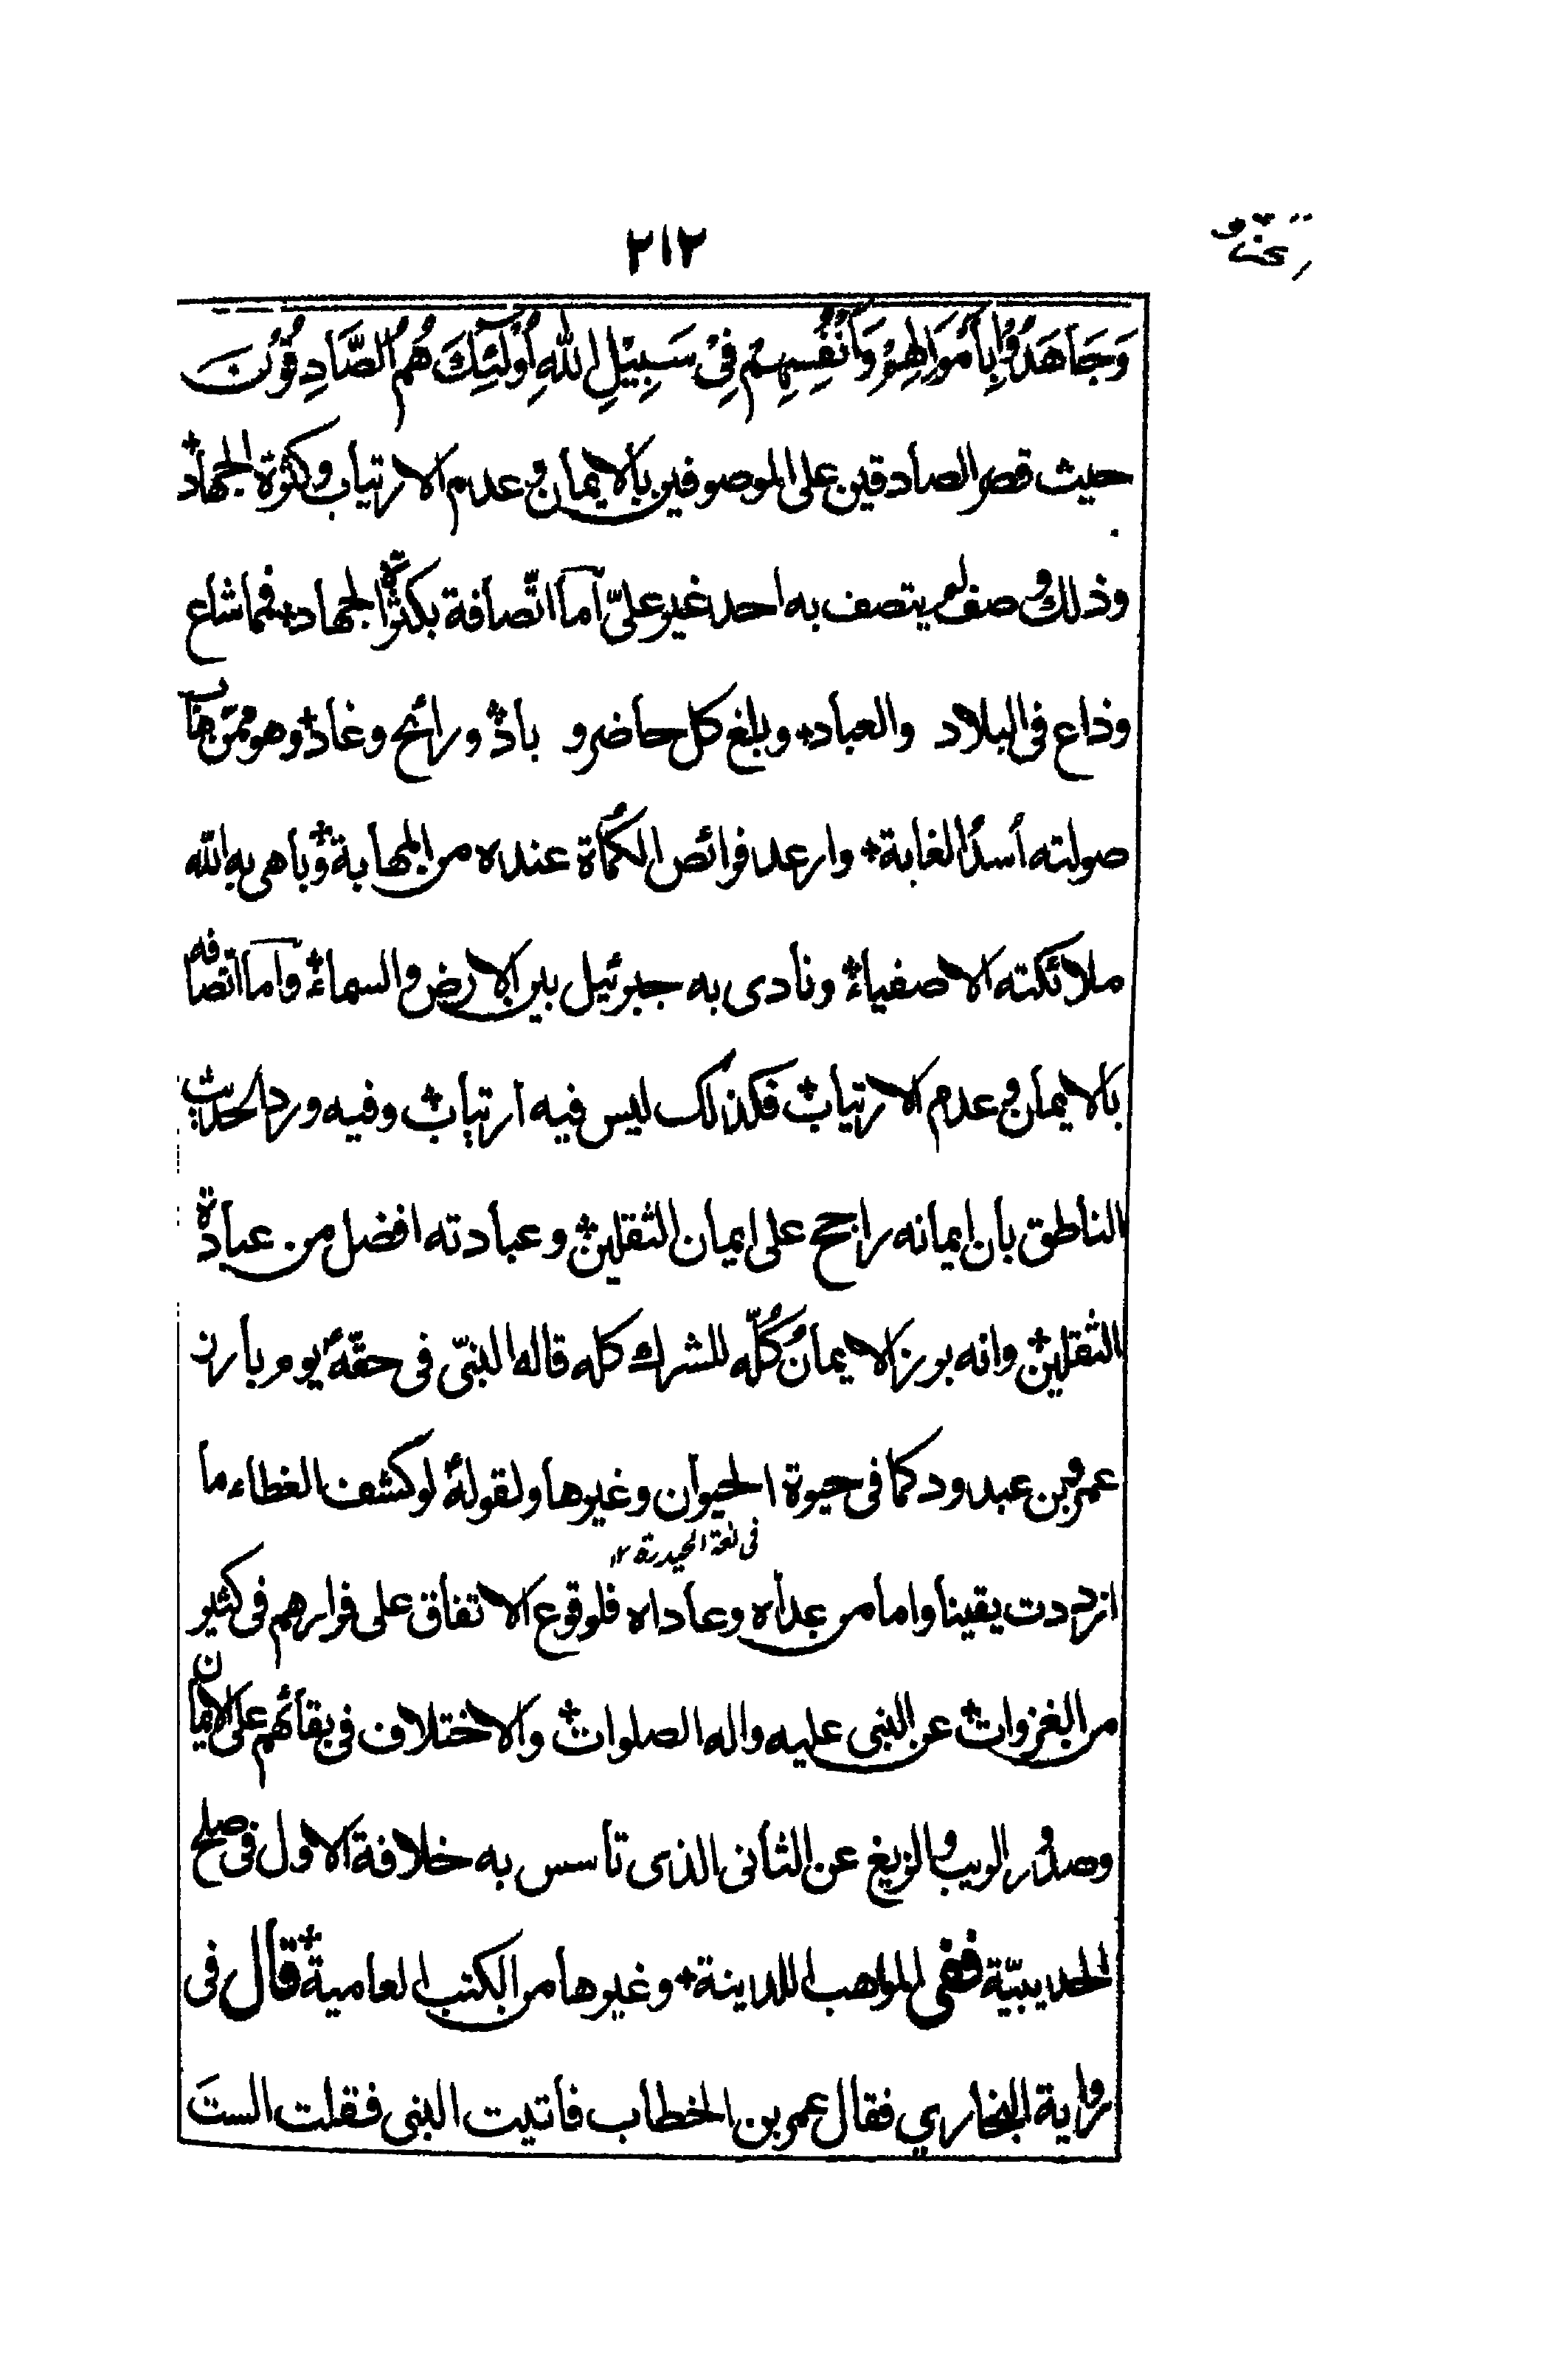 ٢١٢
وَجَاهَدُوْا بِأَمْوَالِهِمْ وَأَنْفُسِهِمْ فِيْ سَبِيْلِ اللهِ أُولٰٓئِكَ هُمُ الصَّادِقُوْنَ
حيث قصر الصادقين على الموصوفين بالايمان وعدم الارتياب وكثرة الجهاد
وذلك وصف لم يتصف به احد غير علىّ آما اتّصافة بكثرة الجهاد فمما شاع
وذاع فى البلاد والعباد وبلغ كل حاضر و باد ورائح وغاد وهو ممن هاب
صولته أسدُ الغابة وارعد فرائص الكُماة عنده من المهابة وباهى به الله
ملائكته الاصفياء ونادى به جبرئيل بين الارض والسماء وآما اتصافه
بالايمان وعدم الارتياب فكذلك ليس فيه ارتياب وفيه ورد الحديث
الناطق بان ايمانه راجح على ايمان الثقلين وعبادته افضل من عبادة
الثقلين وانه برز الايمانُ كُلّه للشرك كله قاله النبىّ فى حقّه يوم بارز
عمرو بن عبدود كما فى حيوة الحيوان وغيرها ولقوله لو كشف الغطاء ما
فى نعته الحيدرية ١٢
ازددت يقينا واما من عداه وعاداه فلوقوع الاتفاق على فرارهم فى كثير
من الغزوات عن النبى عليه واله الصلوات والاختلاف فى بقائهم على الايمان
وصدور الريب والزيغ عن الثانى الذى تاسس به خلافة الاول فى صلح
الحديبيّة ففى المواهب اللدينة وغيرها من الكتب العامية قال فى
رواية البخاري فقال عمر بن الخطاب فاتيت النبى فقلت الستَ